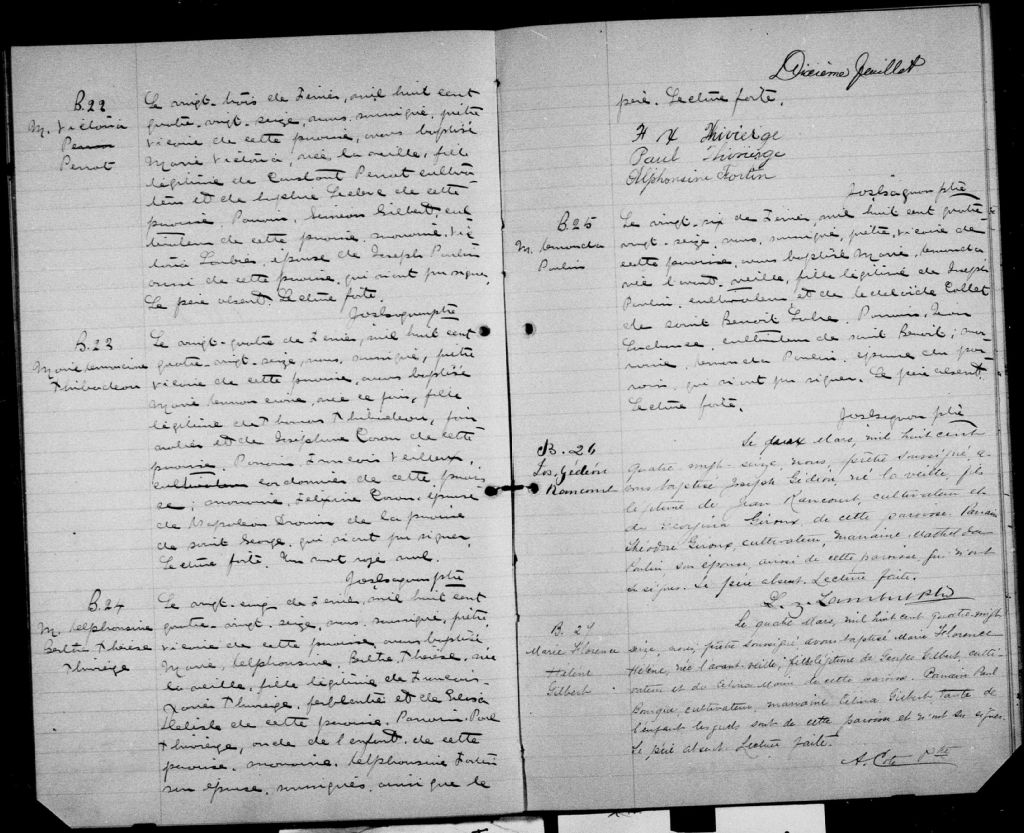 B.22
M. Victoria
Perron
Perrot
Le vingt-trois de Février, mil huit cent
quatre-vingt-seize, nous, soussigné, prêtre
vicaire de cette paroisse, avons baptisé
Marie Victoria, née la veille, fille
légitime de Constant Perrot cultiva-
teur et de Leclerc de cette
paroisse. Parrain, Siméon Gilbert, cul-
tivateur de cette paroisse, marraine, Vic-
toria épouse de Joseph Poulin
aussi de cette paroisse, qui n'ont pu signer.
Le père absent. Lecture faite.
Jos Gagnon ptre
B.23
Marie
Thibodeau
Le vingt-quatre de Février, mil huit cent
quatre-vingt-seize, nous, soussigné, prêtre
vicaire de cette paroisse, avons baptisé
Marie née ce jour, fille
légitime de Thomas Thibodeau, jour-
nalier et de Joséphine Caron de cette
paroisse. Parrain François Veilleux,
cultivateur cordonnier de cette parois-
se; marraine, Caron, épouse
de Napoléon Drouin de la paroisse
de saint George, qui n'ont pu signer.
Lecture faite. Un mot rayé nul.
Jos Gagnon ptre
B.24
M. Alphonsine
Bertha Thérèse
Thivierge
Le vingt-cinq de Février, mil huit cent
quatre-vingt-seize, nous, soussigné, prêtre,
vicaire de cette paroisse, avons baptisé
Marie, Alphonsine, Bertha, Thérèse, née
la veille, fille légitime de François-
Xavier Thivierge, ferblantier et de
de cette paroisse. Parrain, Paul
Thivierge, oncle de l'enfant de cette
paroisse, marraine, Alphonsine Fortin
son épouse, soussignés, ainsi que le
Dixième feuillet
père. Lecture faite.
F X Thivierge
Paul Thivierge
Alphonsine Fortin
Jos Gagnon ptre
B.25
M. Amanda
Poulin
Le vingt-six de Février, mil huit cent quatre-
vingt-seize, nous, soussigné, prêtre, vicaire de
cette paroisse, avons baptisé Marie, Amanda
née l'avant-veille, fille légitime de Joseph
Poulin, cultivateur et de Adélaïde
de saint Benoit Labre. Parrain, Jean
cultivateur de saint Benoit; mar-
raine, Amanda Poulin, épouse du par-
rain, qui n'ont pu signer. Le père absent.
Lecture faite.
Jos Gagnon ptre
B. 26
Jos. Gédéon
Rancourt
Le deux Mars, mil huit cent
quatre vingt-seize, nous, prêtre soussigné, a-
vons baptisé Joseph Gédéon, né la veille, fils
légitime de Jean Rancourt, cultivateur et
de Georgina Giroux, de cette paroisse. Parrain
Théodore Giroux, cultivateur, marraine Mathilda
Poulin son épouse, aussi de cette paroisse, qui n'ont
su signer. Le père absent. Lecture faite.
L. Z. Lambert Ptre
B. 27
Marie Florence
Hélène
Gilbert
Le quatre Mars, mil huit cent quatre-vingt
seize, nous, prêtre soussigné avons baptisé Marie Florence
Hélène, née l'avant-veille, fille légitime de Georges Gilbert, culti-
vateur et de Célina Morin de cette paroisse. Parrain Paul
Bourque, cultivateur, marraine Célina Gilbert, tante de
l'enfant lesquels sont de cette paroisse et n'ont su signer.
Le père absent. Lecture faite.
A. Côté Ptre